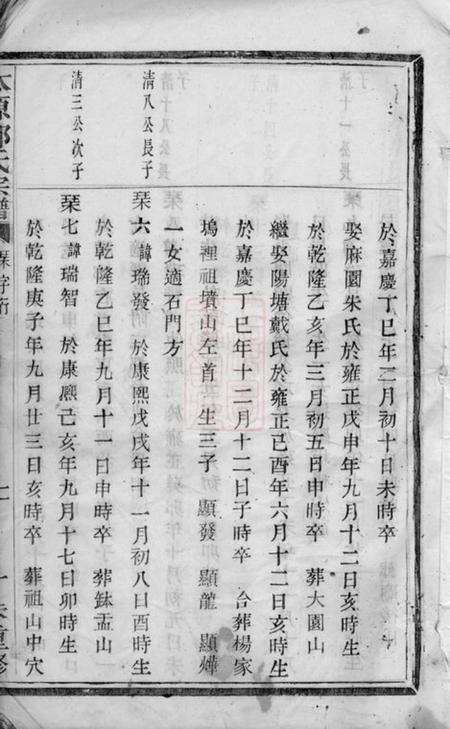 於嘉慶丁巳年二月初十日未時卒
娶麻園朱氏於雍正戊申年九月十二日亥時生
於乾隆乙亥年三月初五日申時卒 葬大園山
繼娶陽塘戴氏於雍正己酉年六月十二日亥時生
於嘉慶丁巳年十二月十二日子時卒 合葬楊家
塢裡祖墳山左首 生三子 顯發 顯龍 顯燁
一女適石門方
清八公長子
琹六 諱瑞發 於康熙戊戌年十一月初八日酉時生
於乾隆乙巳年九月十一日申時卒 葬鉢盂山
清三公次子
琹七 諱瑞智 於康熙己亥年九月十七日卯時生
於乾隆庚子年九月廿三日亥時卒 葬祖山中穴
原 氏宗譜